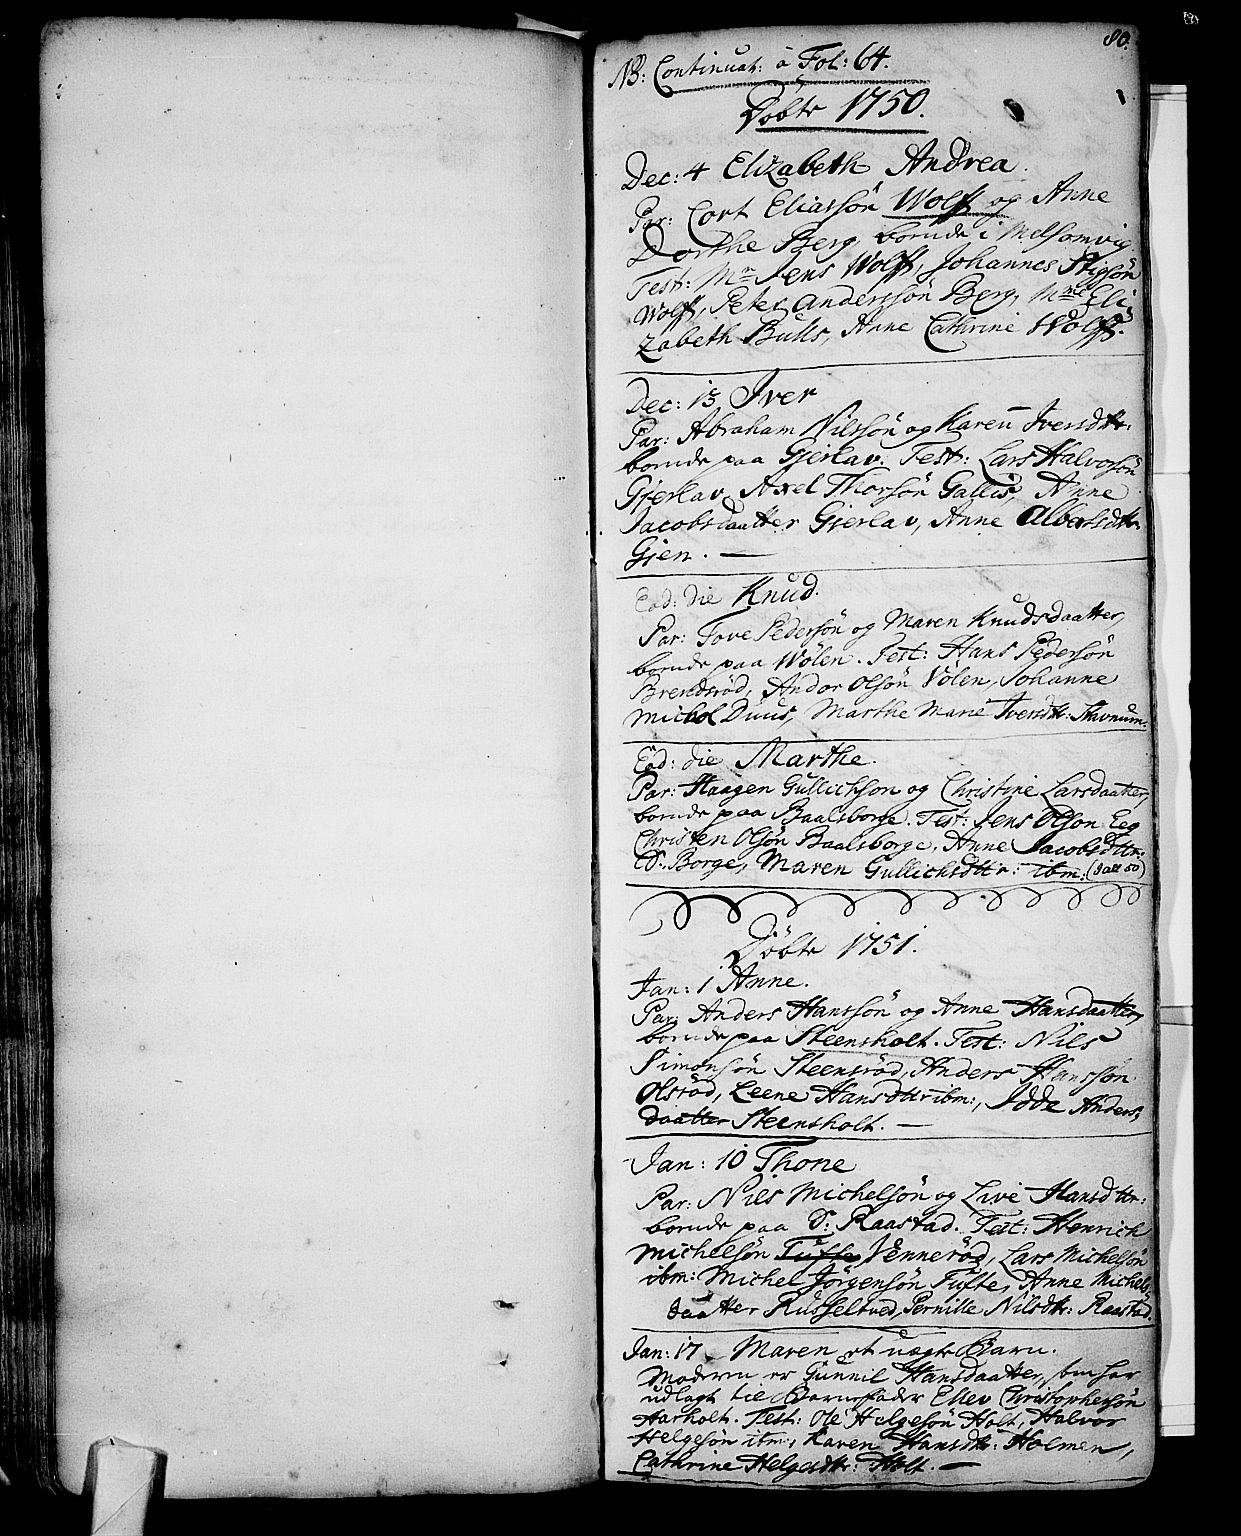 80.
NB: Continuat: à Fol: 64.
Döbte 1750.
Dec: 4 Elizabeth Andrea.
Par: Cort Eliassön Wolff og Anne
Dorthe Berg boende i Melsomvig
Test: Mr. Jens Wolff, Johannes Stigsön
Wolff, Peter Anderssön Berg, Mme Eli
zabeth Bulls, Anne Cathrine Wolff.
Dec: 13 Iver
Par: Abraham Nilssön og Karen Iversdtr:
boende paa Gjerlav. Test: Lars Halvorsön
Gjerlav, Axel Thorsön Gallis, Anne
Jacobsdaatter Gjerlav, Anne Albertsdtr
Gjen. —
Eod: die Knud.
Par: Tove Pedersön og Maren Knudsdaatter,
boende paa Wölen. Test: Hans Pedersön
Brendsröd, Andor Olsön Völen, Johanne
Michol Duus, Marthe Marie Iversdtr: Stavnum.
Eod: die Marthe.
Par: Haagen Gullichsön og Christine Larsdaatter,
boende paa Baalsborge. Test: Jens Olsön Eeg
Christen Olsön Baalsborge, Anne Jacobsdttr:
S. Borge, Maren Gullichsdttr: ibm:
Döbte 1751.
Jan: 1 Anne.
Par: Anders Hanssön og Anne Hansdaatter,
boende paa Steensholt. Test: Nils
Simonsön Steensröd, Anders Hanssön
Olsröd, Leene Hansdttr ibm:, Idde Anders
daatter Steensholt. —
Jan: 10 Thone
Par: Nils Michelsön og Live Hansdttr:
boende paa S: Raastad. Test: Henrich
Michelsön Tufte Venneröd, Lars Michelsön
ibm: Michel Jörgensön Tufte, Anne Michels
daatter Russeltved, Pernille Nilsdtr: Raastad.
Jan: 17 Maren et uægte Barn.
Moderen er Gunnil Hansdaatter, som har
udlagt til Barnefader Ellev Christophersön
Aarholt. Test: Ole Helgesön Holt, Halvor
Helgesön ibm:, Karen Hansdtr: Holmen,
Cathrine Helgesdtr: Holt. —